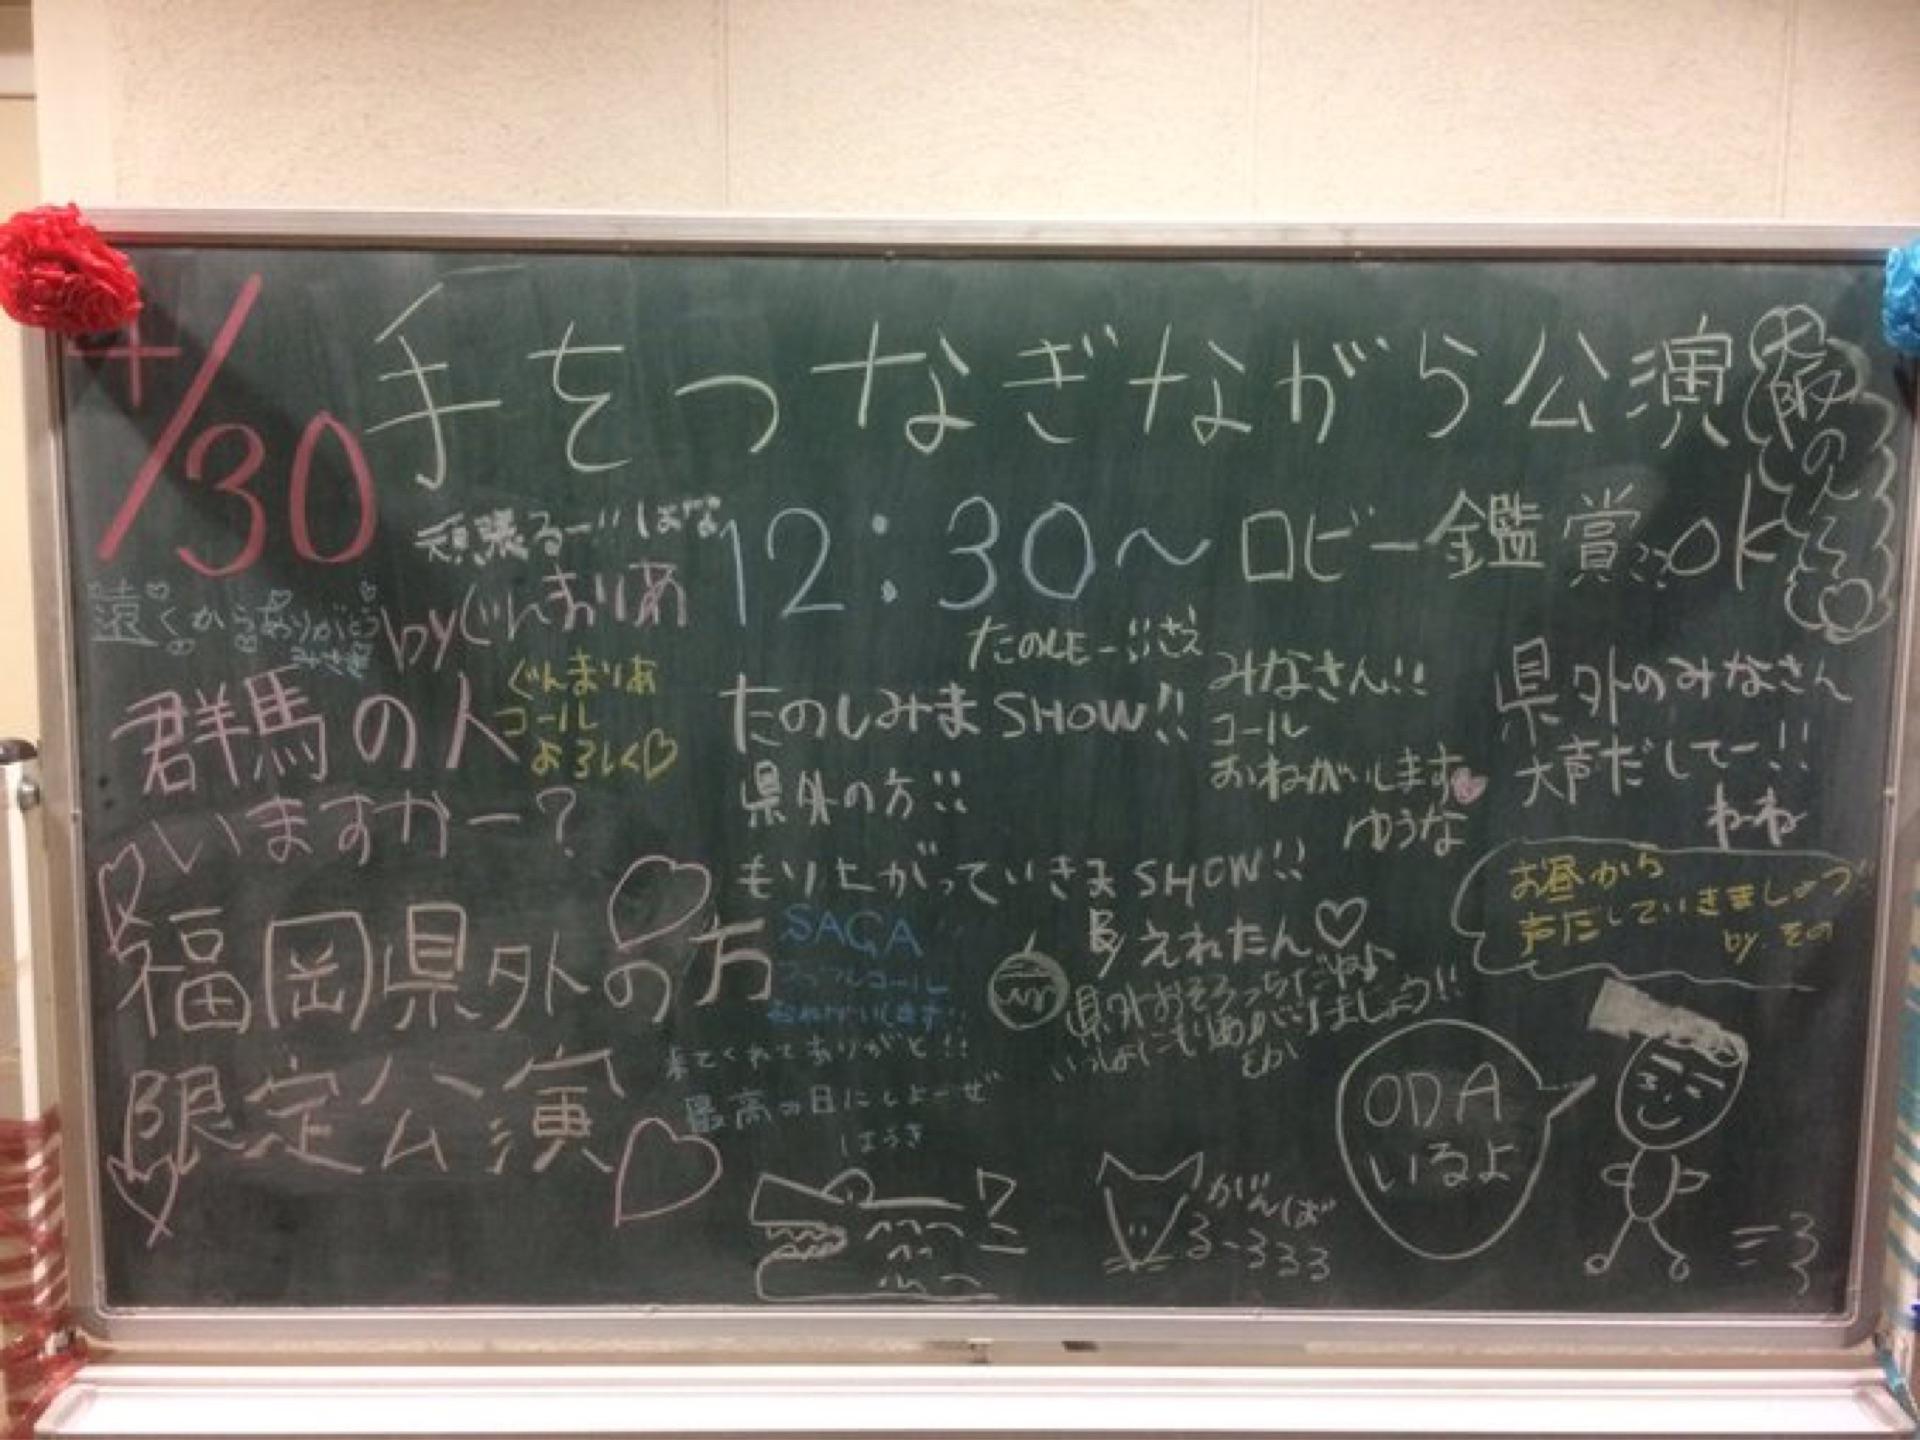 4/30
手をつなぎながら公演
大阪の
12:30～
ロビー鑑賞..OK
頑張るー!!はな
遠くからありがとう
byぐんまりあ
群馬の人
いますかー?
ぐんまりあ
コール
よろしく♡
福岡県外の方
限定公演
たのしE-!!さえ
たのしみまSHOW!!
県外の方!!
もり上がっていきまSHOW!!
みなさん!!
コール
おねがいします
ゆうな
県外のみなさん
大声だしてー!!
ねね
お昼から
声だしていきましょう!!
by.その
SAGA
コール
おねがいします
来てくれてありがと!!
最高の日にしよーぜ
えれたん♡
県外おそろっちだねよ
いっしょにもりあがりましょう!!
がんば
る-333
ODA
いるよ